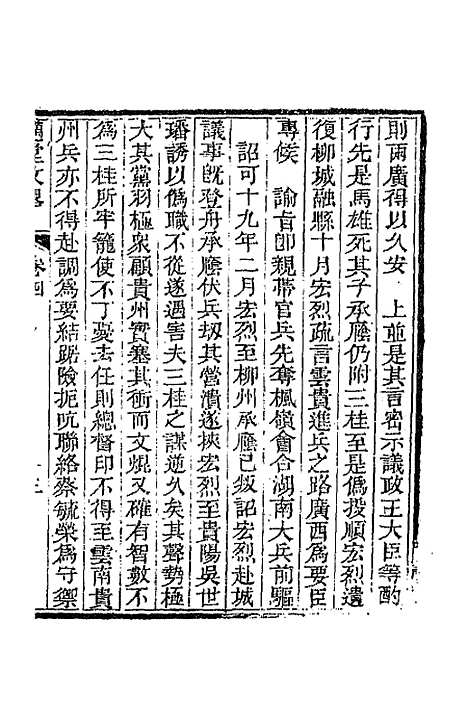 則兩廣得以久安　上並是其言密示議政王大臣等酌
行先是馬雄死其子承廕仍附三桂至是僞投順宏烈遣
復柳城融縣十月宏烈疏言雲貴進兵之路廣西爲要臣
專俟　諭旨卽親帶官兵先奪楓嶺會合湖南大兵前驅
詔可十九年二月宏烈至柳州承廕已叛詔宏烈赴城
議事旣登舟承廕伏兵刼其營潰遂挾宏烈至貴陽吳世
璠誘以僞職不從遂遇害夫三桂之謀逆久矣其聲勢極
大其黨羽極衆顧貴州實蹇其衝而文焜又確有智數不
爲三桂所牢籠使不丁憂去任則總督印不得至雲南貴
州兵亦不得赴調爲要結踞險扼吭聯絡蔡毓榮爲守禦
卷四